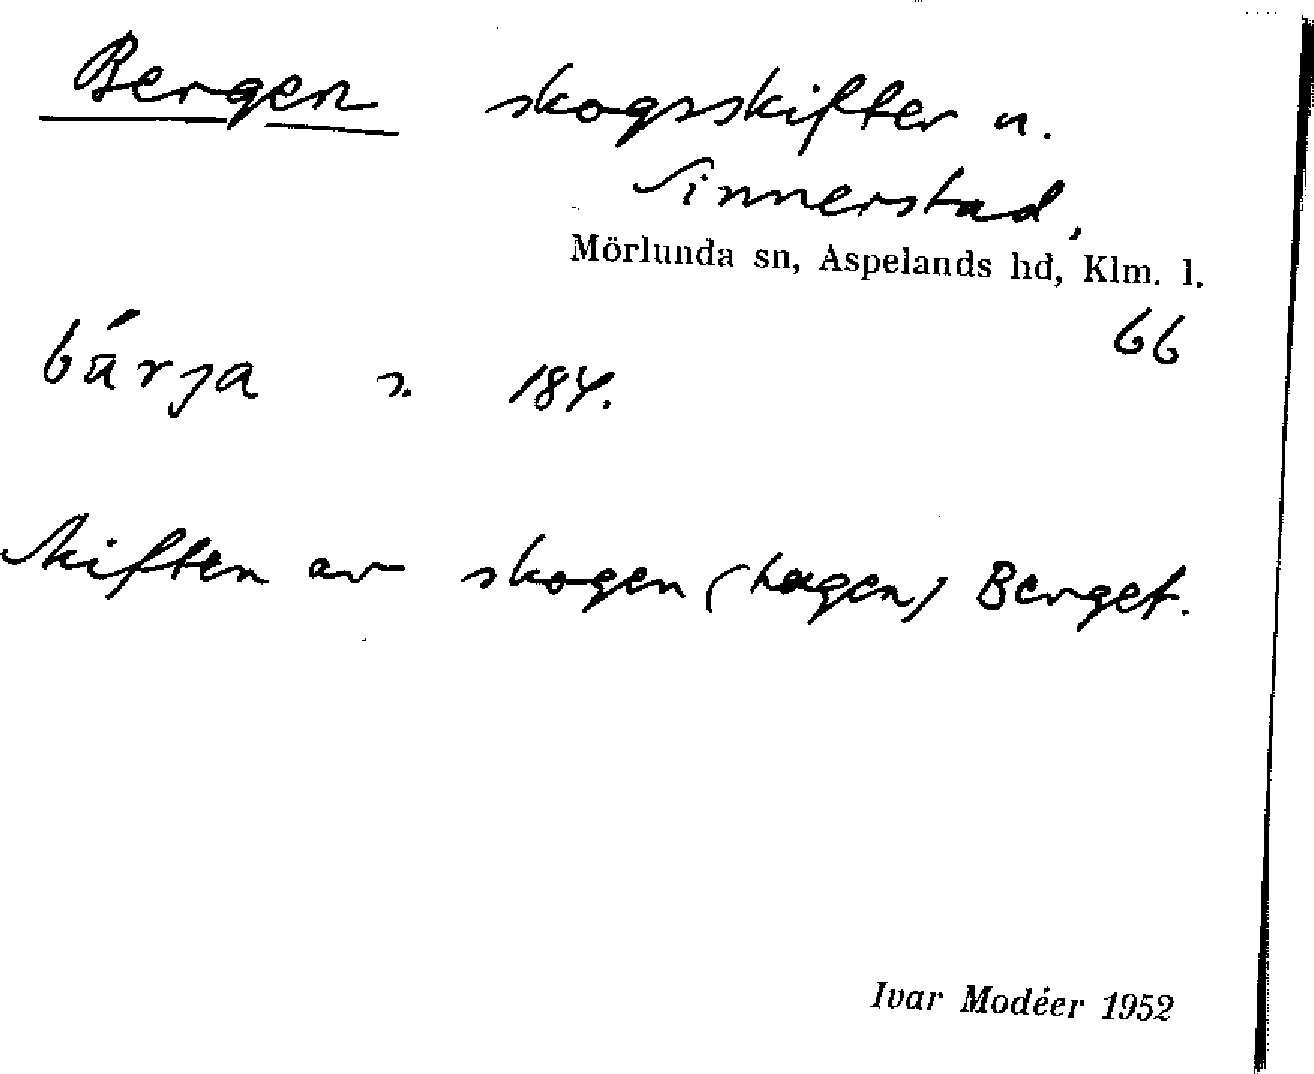 Bergen skogsskifter u.
Sinnerstad,
Mörlunda sn, Aspelands hd, Klm. l.
66
bárja s. 184.
Skiften av skogen (hagen) Berget.
Ivar Modéer 1952